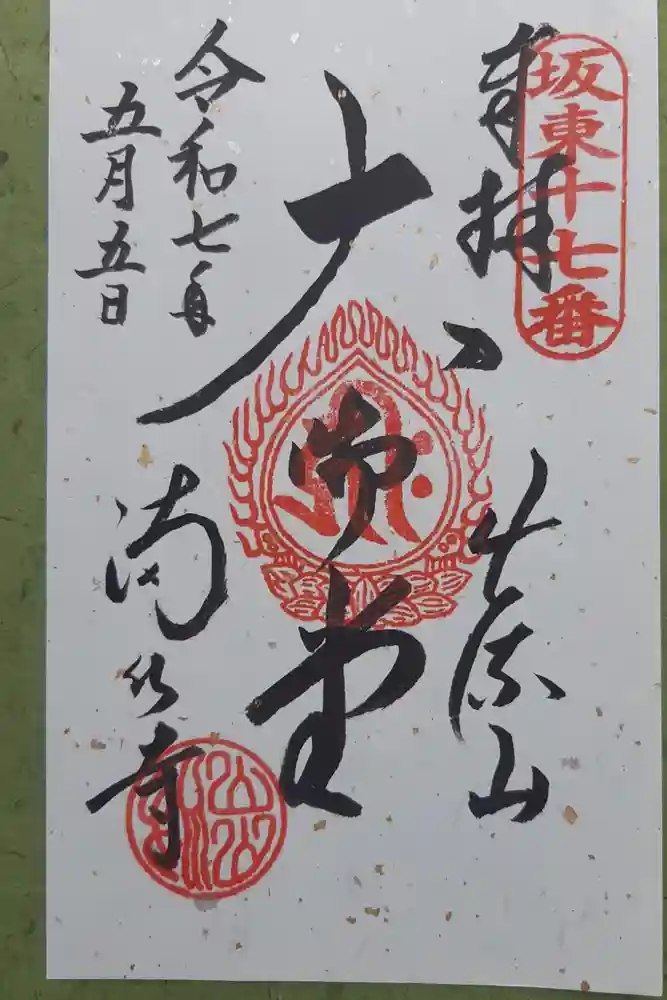 坂東十七番
奉拝
出流山
大悲堂
満願寺
令和七年
五月五日